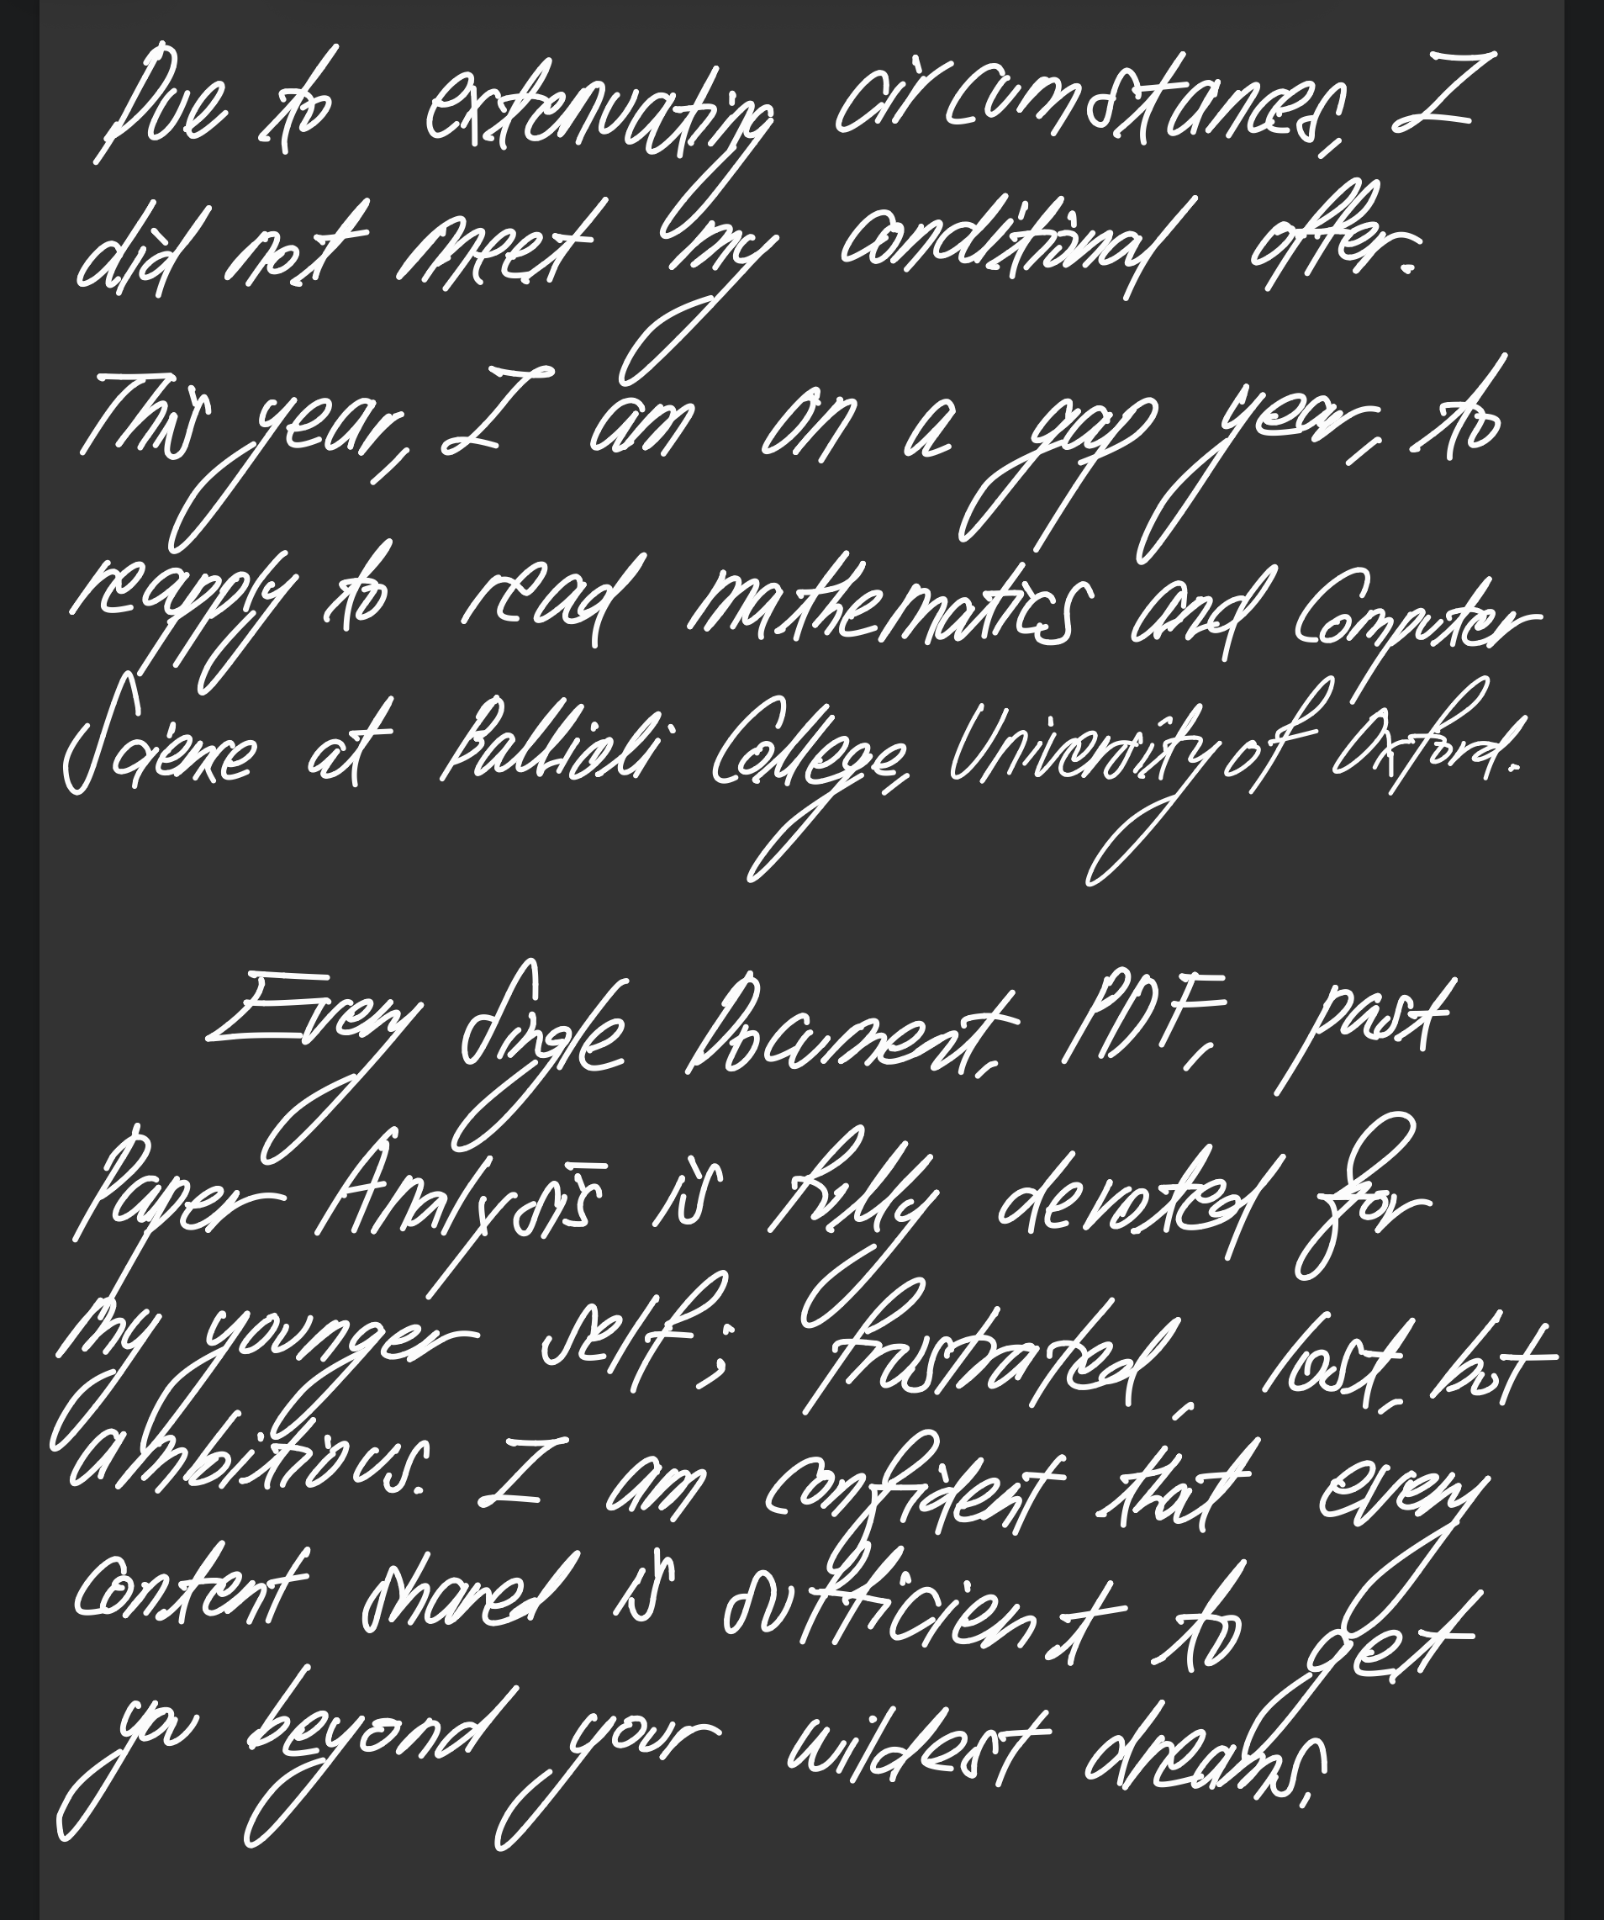 Due to extenuating circumstances, I
did not meet my conditional offer.
This year, I am on a gap year, to
reapply to read mathematics and Computer
Science at Ballioli College, University of Oxford.
Every Single Document, PDF, past
Paper Analysis is fully devoted for
my younger self; frustrated, lost, but
ambitious. I am confident that every
content shared is sufficient to get
you beyond your wildest dreams,